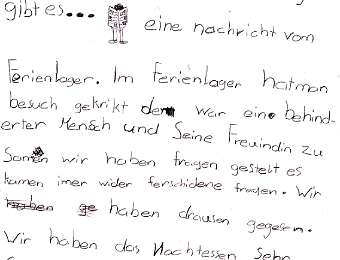 gibt es...
eine nachricht vom
Ferienlager. Im Ferienlager hatman
besuch gekrikt der war eine behind-
erter Mensch und Seine Freuindin zu
Samen wir haben fragen gestelt es
kamen imer wider ferschidene fragen. Wir
haben ge haben drausen gegesen.
Wir haben das Nachtessen Sehr